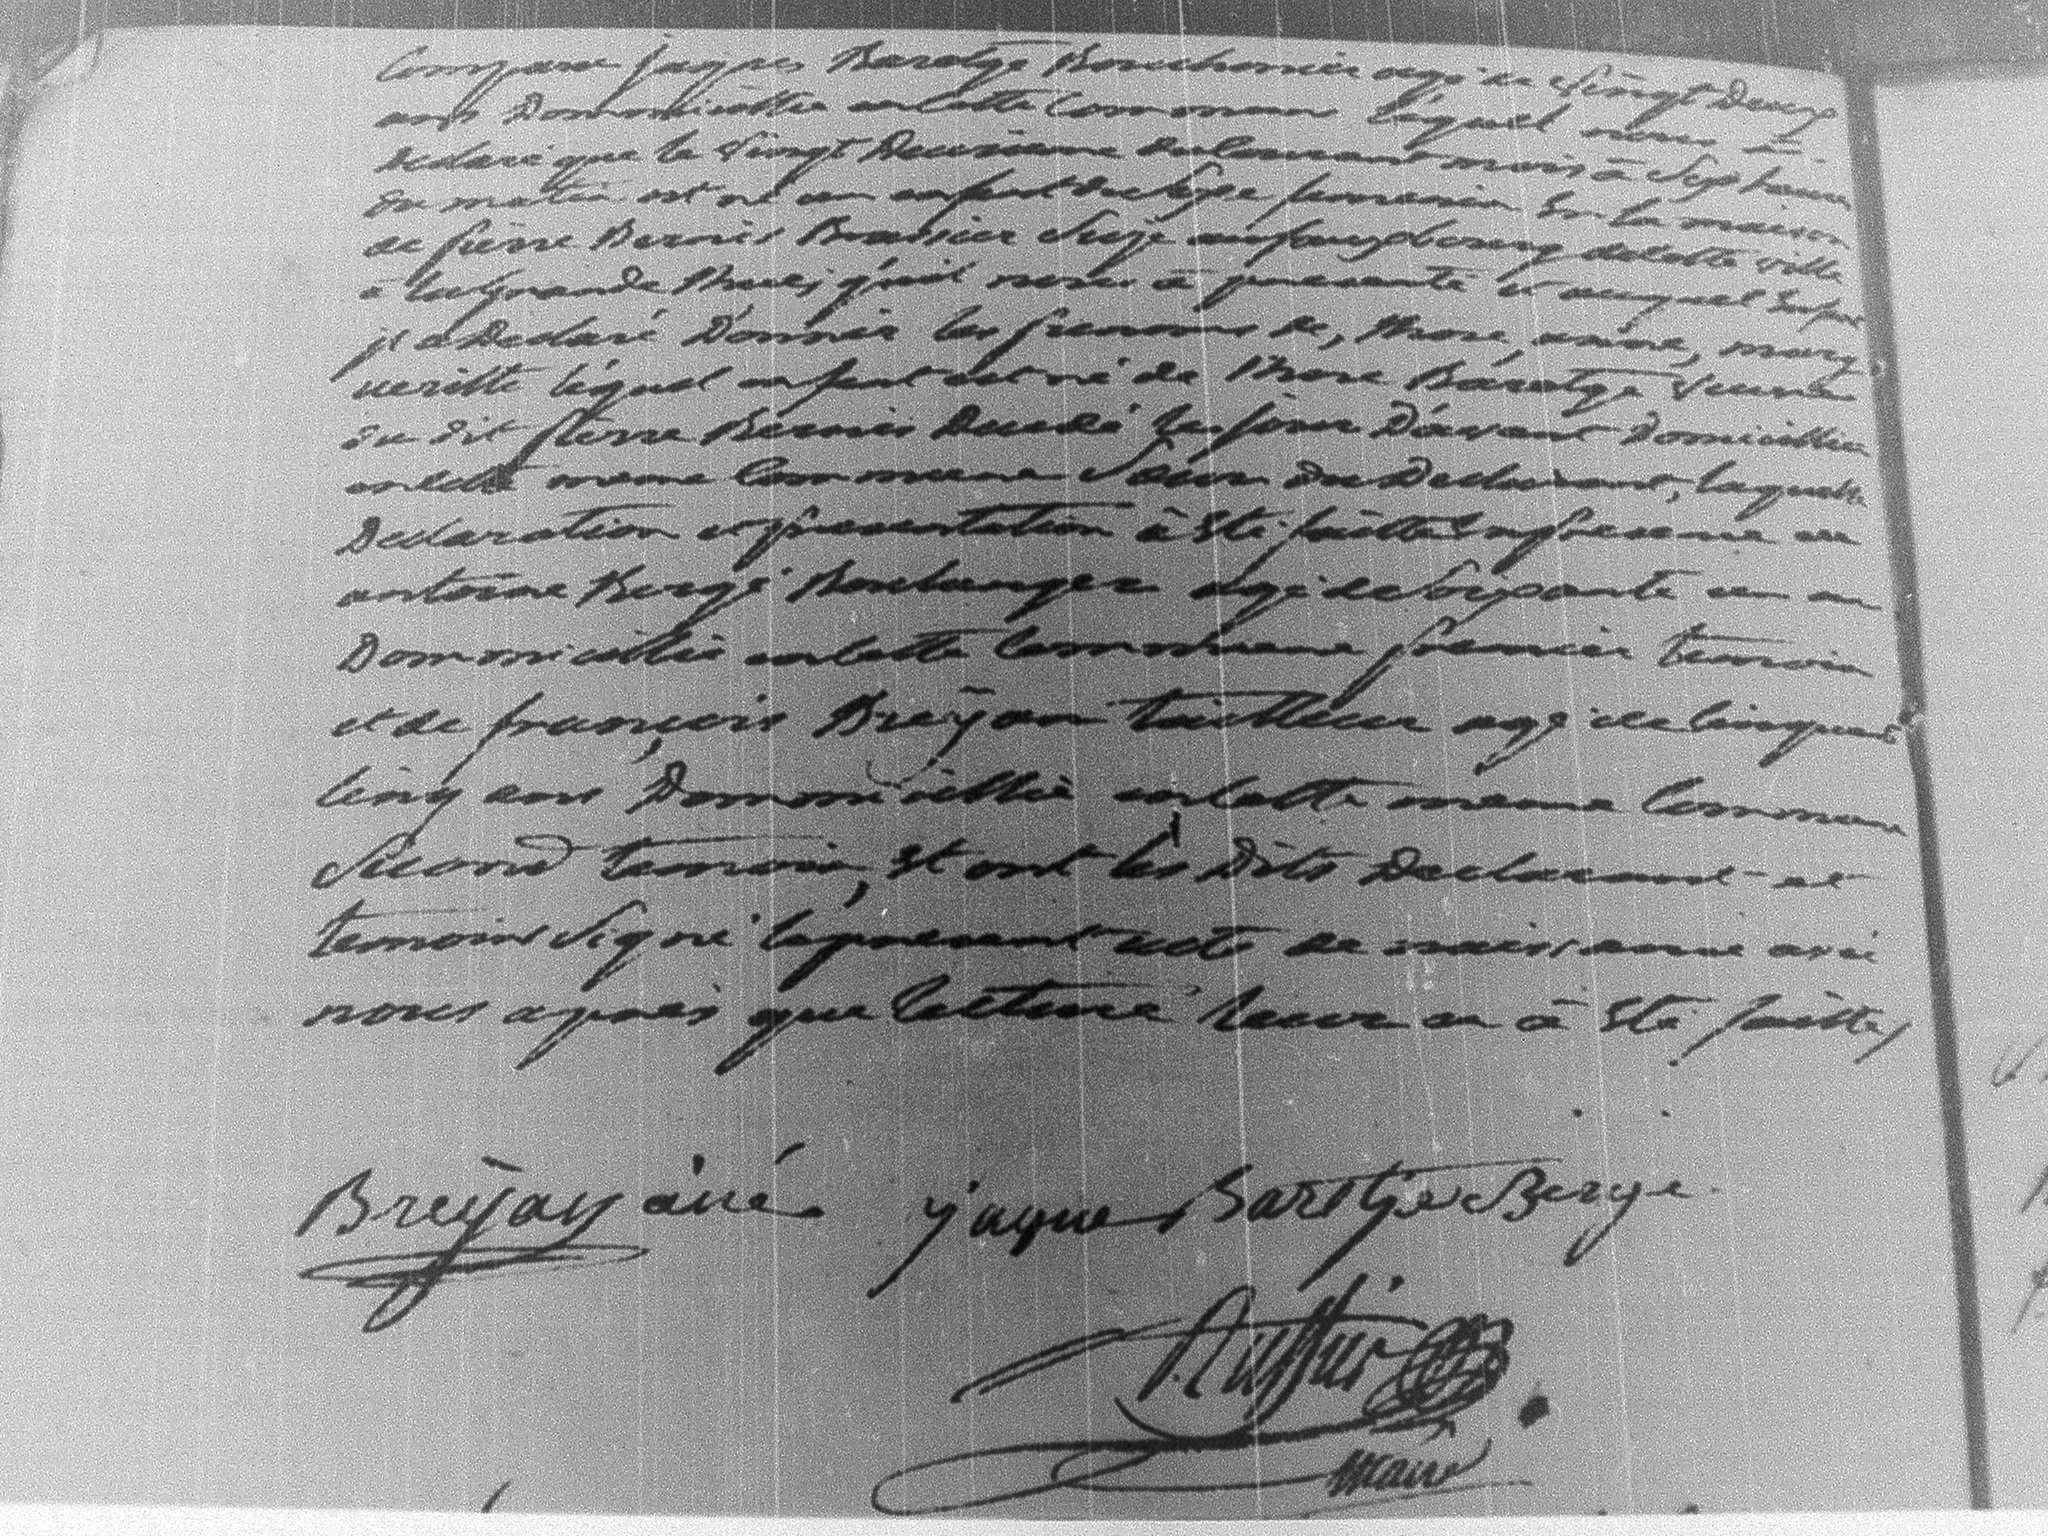 Comparu jaques Barotge Bouchonier agé de Vingt Deux
ans Dommicillié en cette Commune lequel nous à
declaré que le Vingt Deuxieme du Courant mois à Sept heures
du matin est né un enfant du Sexe femenin En la maison
de pierre Bernis Brassier Size au fauxbourg de cette ville
à la Grande Rue, qu'il nous à presenté et auquel Enfant
jl a Declaré Donner les prenoms de, Rose, anne, marg
ueritte léquel enfant est né de Rose Barotge Veuve
du dit pierre Bernis Decedé Domicillier
en cette meme Commune Sœur du Declarant, laquelle
Declaration et presentation à Eté faitte En presence de
antoine Bergé Boulanger agé de Soixante un an
Dommicillié en cette Commune premier temoin
et de françois Breÿan tailleur agé de Cinquante
Cinq ans Dommicillié en cette meme Commune
Second temoin, Et ont les Dits Declarant et
temoins Signé lepresent acte de naissance avé
nous après que lecture leur en à Eté faitte,
Breÿan ainé jaques Barotge Bergé
maire